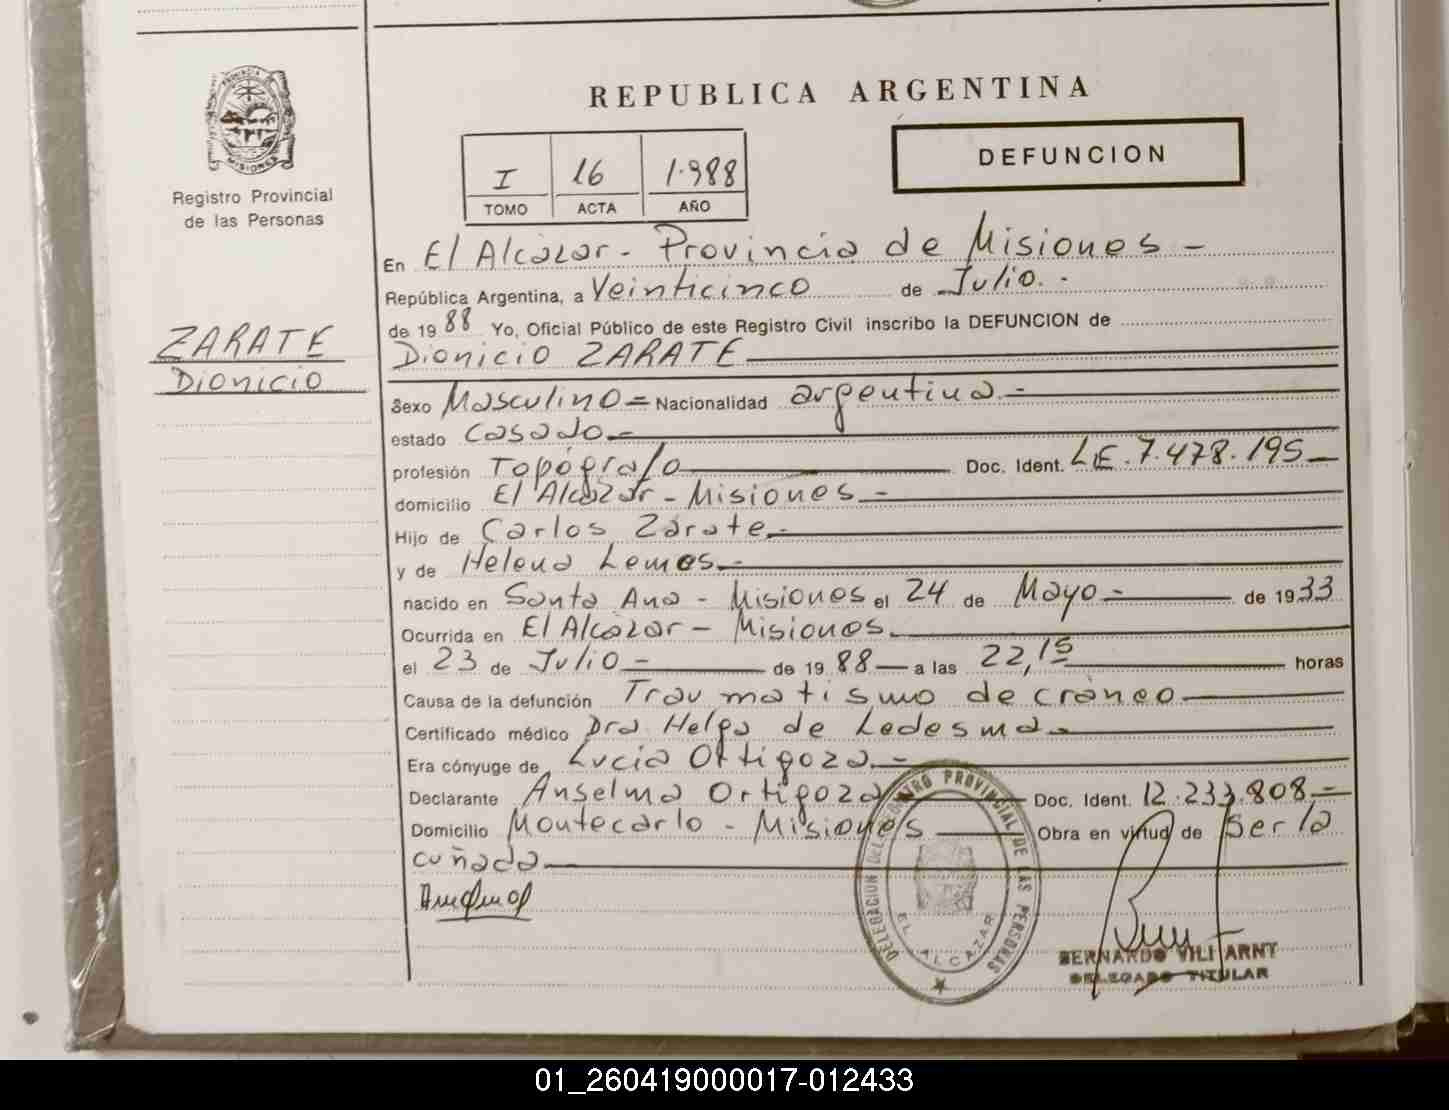 REPUBLICA ARGENTINA
PROVINCIA DE
MISIONES
Registro Provincial
de las Personas
I 16 1.988
TOMO ACTA AÑO
DEFUNCION
En El Alcázar - Provincia de Misiones -
República Argentina, a Veinticinco de Julio. -
de 19 88 Yo, Oficial Público de este Registro Civil inscribo la DEFUNCION de
ZARATE
Dionicio
Dionicio ZARATE
Sexo Masculino = Nacionalidad argentina -
estado casado -
profesión Topógrafo Doc. Ident. L.E. 7.478.195 -
domicilio El Alcázar - Misiones -
Hijo de Carlos Zárate -
y de Helena Lemes -
nacido en Santa Ana - Misiones el 24 de Mayo - de 19 33
Ocurrida en El Alcázar - Misiones.
el 23 de Julio - de 19 88 - a las 22,15 horas
Causa de la defunción Traumatismo de cráneo
Certificado médico Dra. Helga de Ledesma
Era cónyuge de Lucia Ortigoza -
Declarante Anselma Ortigoza Doc. Ident. 12.233.808 -
Domicilio Montecarlo - Misiones Obra en virtud de Ser la
cuñada
DELEGACION DEL REGISTRO PROVINCIAL DE LAS PERSONAS
EL ALCAZAR
BERNARDO VILI ARNT
DELEGADO TITULAR
01_260419000017-012433